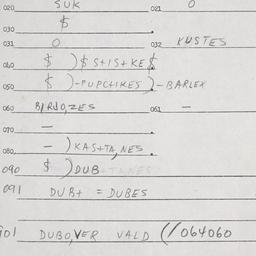 020 SUK 021 0
030 $
031 0 032 KUSTES
040 $ )$ S+IS+KE$
050 $ )-PUPCHKES )-BARLEX
060 B/RDO,ZES 061 –
070 –
080 – )KAS+TA,NES.
090 $ )DUB
091 DUB+ = DUBES
101 DUBO,VER VALD (/064060